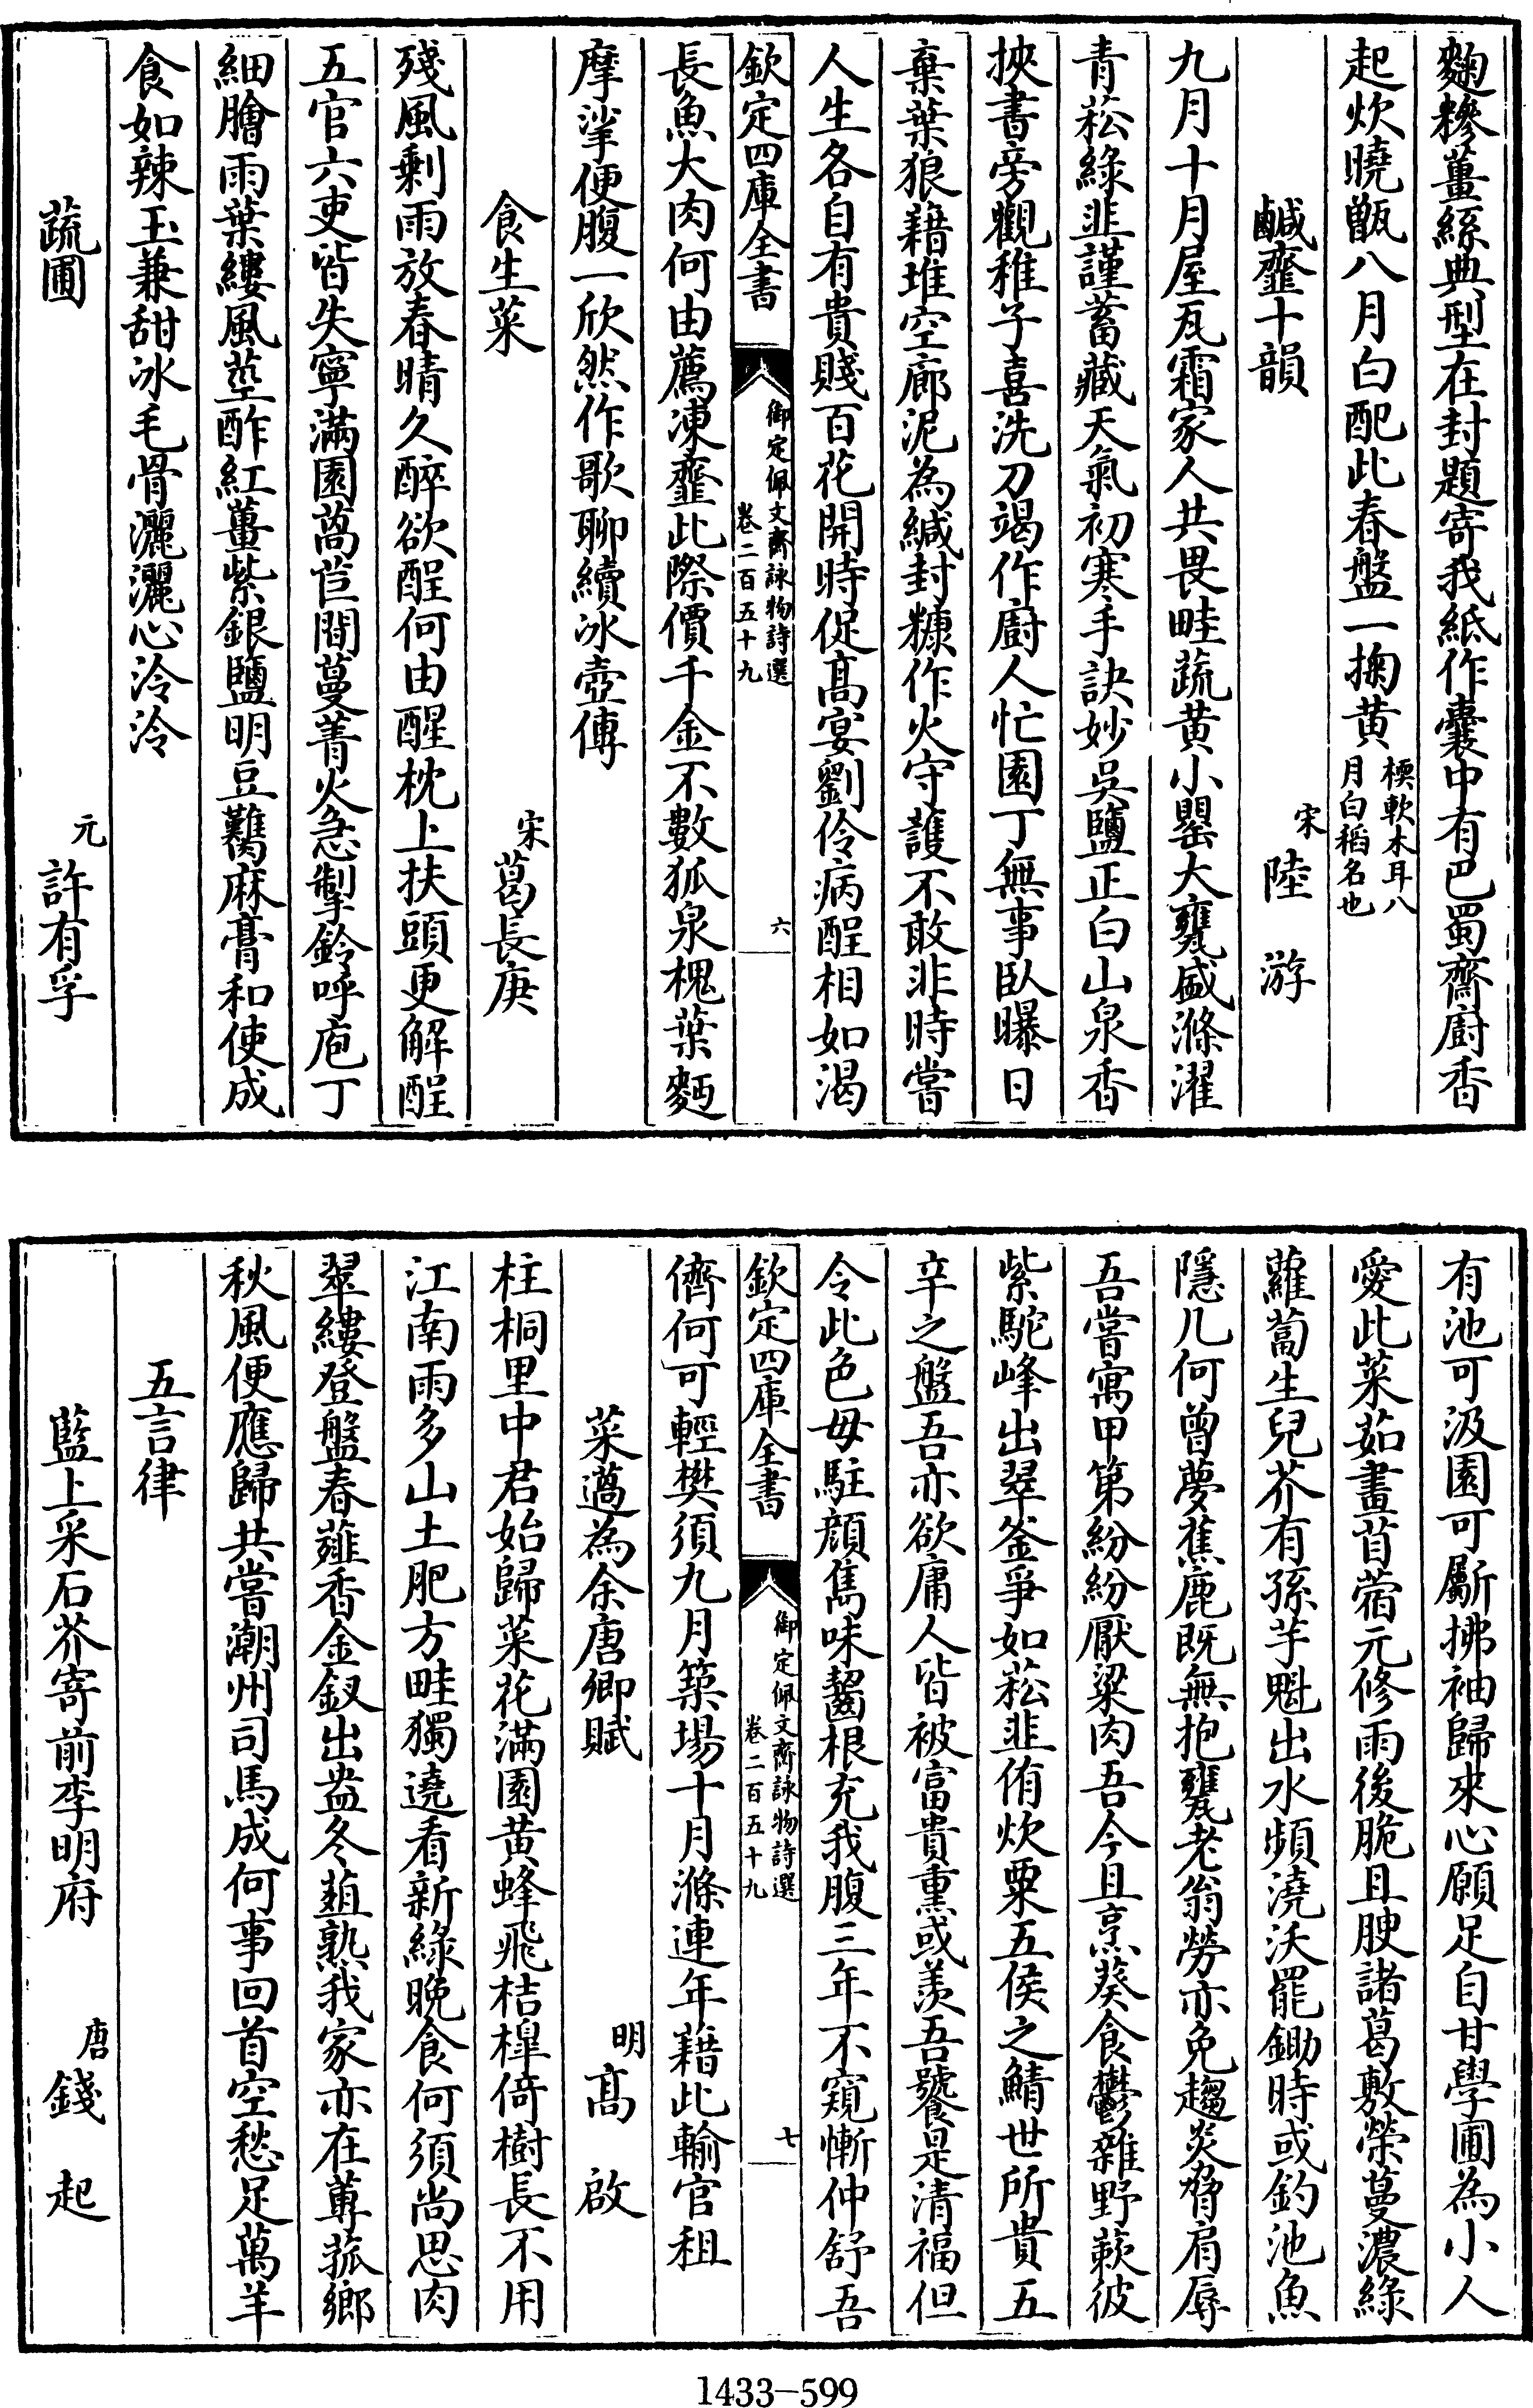 麴糝薑絲典型在封題寄我紙作囊中有巴蜀齋廚香
起炊曉甑八月白配此春盤一掬黄楆軟木耳八月白稻名也
鹹虀十韻 宋 陸游
九月十月屋瓦霜家人共畏畦蔬黄小罌大甕盛滌濯
青菘綠韭謹蓄藏天氣初寒手訣妙吳鹽正白山泉香
挾書旁觀稚子喜洗刀竭作廚人忙園丁無事臥曝日
棄葉狼藉堆空廊泥為緘封糠作火守護不敢非時嘗
人生各自有貴賤百花開時促髙宴劉伶病酲相如渴
欽定四庫全書 御定佩文齋詠物詩選 卷二百五十九 六
長魚大肉何由薦凍虀此際價千金不數狐泉槐葉麪
摩挲便腹一欣然作歌聊續冰壺傳
食生菜 宋 葛長庚
殘風剩雨放春晴久醉欲酲何由醒枕上扶頭更解酲
五官六吏皆失寧滿園萵苣間蔓菁火急掣鈴呼庖丁
細膾雨葉縷風莖酢紅薑紫銀鹽明豆䕩麻膏和使成
食如辣玉兼甜冰毛骨灑灑心泠泠
蔬圃 元 許有孚
有池可汲園可斸拂袖歸來心願足自甘學圃為小人
愛此菜茹畫苜蓿元修雨後脆且腴諸葛敷榮蔓濃綠
蘿蔔生兒芥有孫芋魁出水頻澆沃罷鋤時或釣池魚
隱几何曾夢蕉鹿既無抱甕老翁勞亦免趨炎脅肩辱
吾嘗寓甲第紛紛厭粱肉吾今且烹葵食鬱雜野蔌彼
紫駝峰出翠釡爭如菘韭侑炊粟五侯之鯖世所貴五
辛之盤吾亦欲庸人皆被富貴熏或羨吾饕是清福但
令此色毋駐顔雋味齧根充我腹三年不窺慚仲舒吾
欽定四庫全書 御定佩文齋詠物詩選 卷二百五十九 七
儕何可輕樊須九月築場十月滌連年藉此輸官租
菜薖為余唐卿賦 明 髙啟
柱桐里中君始歸菜花滿園黄蜂飛桔橰倚樹長不用
江南雨多山土肥方畦獨遶看新綠晚食何須尚思肉
翠縷登盤春薤香金釵出盎冬葅熟我家亦在蓴菰鄉
秋風便應歸共嘗潮州司馬成何事回首空愁足萬羊
五言律
藍上采石芥寄前李明府 唐 錢起
1433-599